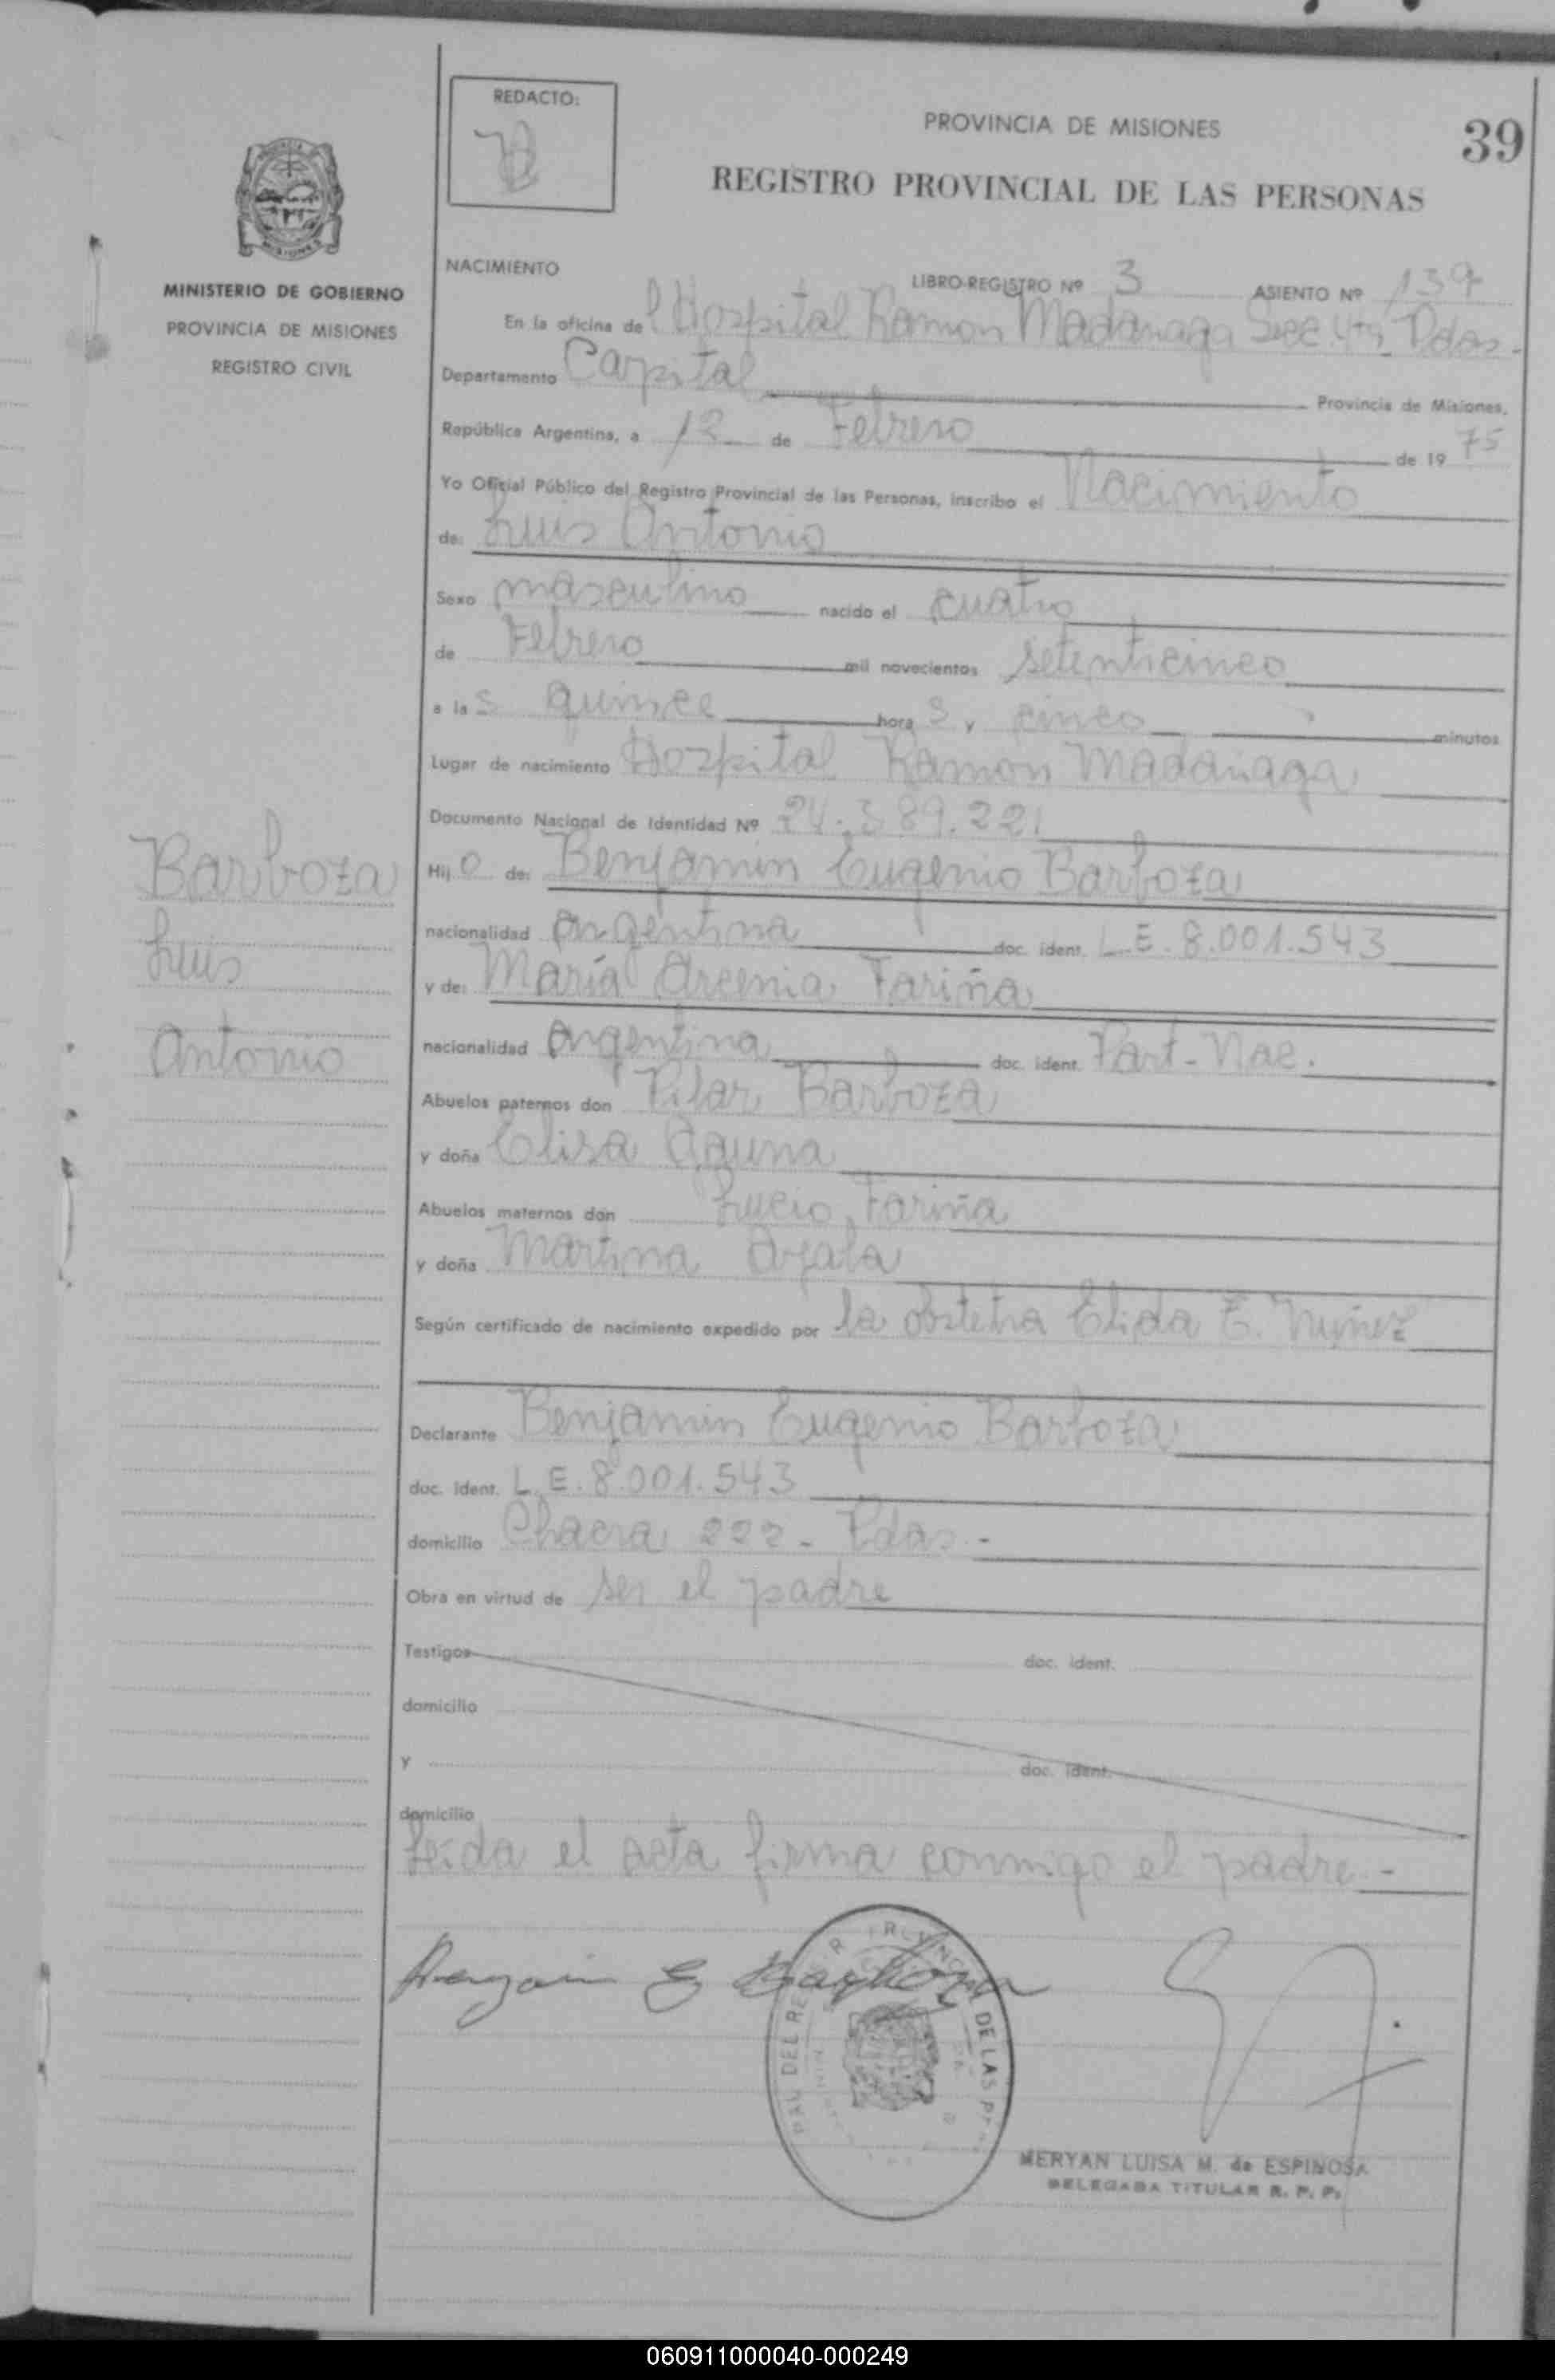 REDACTO:
PROVINCIA DE MISIONES
39
REGISTRO PROVINCIAL DE LAS PERSONAS
MINISTERIO DE GOBIERNO
PROVINCIA DE MISIONES
REGISTRO CIVIL
NACIMIENTO
LIBRO-REGISTRO Nº 3 ASIENTO Nº 139
En la oficina del Hospital Ramon Madariaga Secc. 4ta Pdas.-
Departamento Capital Provincia de Misiones,
República Argentina, a 12 de Febrero de 1975
Yo Oficial Público del Registro Provincial de las Personas, inscribo el Nacimiento
de: Luis Antonio
Sexo masculino nacido el cuatro
de Febrero mil novecientos setenticinco
a las quince horas y cinco minutos
Lugar de nacimiento Hospital Ramon Madariaga
Documento Nacional de Identidad Nº 24.389.221
Hijo de: Benjamin Eugenio Barboza
nacionalidad argentina doc. ident. L.E. 8.001.543
y de: María Arcenia Fariña
nacionalidad argentina doc. ident. Part-Nac.
Abuelos paternos don Pilar Barboza
y doña Elisa Aguna
Abuelos maternos don Lucio Fariña
y doña Martina Ayala
Según certificado de nacimiento expedido por la obstetra Elida E. Nuñez
Declarante Benjamin Eugenio Barboza
doc. ident. L.E. 8.001.543
domicilio Chacra 222 - Pdas.-
Obra en virtud de ser el padre
Testigos doc. ident.
domicilio
y doc. ident.
domicilio
Leida el acta firma conmigo el padre.-
Barboza
Luis
Antonio
Benjamin E Barboza
DEL DE LAS
MERYAN LUISA M. de ESPINOSA
DELEGADA TITULAR R. P. P.
060911000040-000249